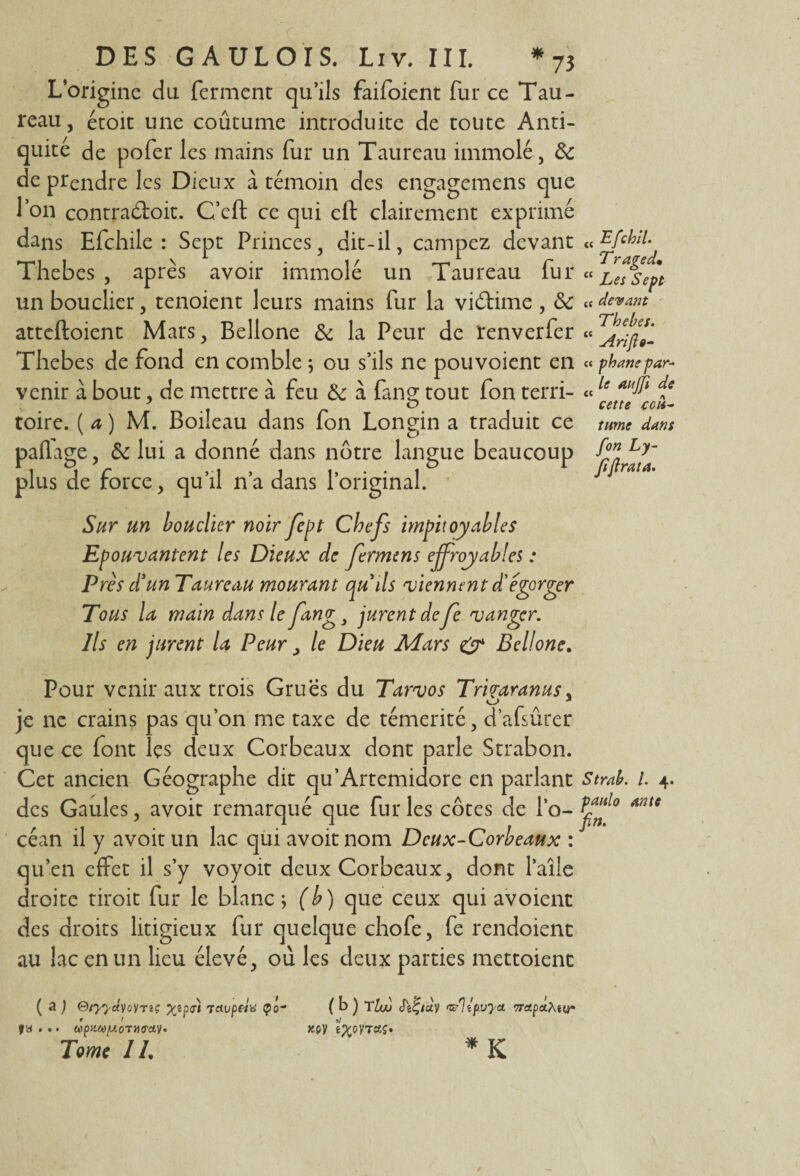 DES GAULOIS. LIV. III. * 73
L'origine du serment qu'ils faisoient sur ce Tau-
reau, étoit une coûtume introduite de toute Anti-
quité de poser les mains sur un Taureau immolé, &
de prendre les Dieux à témoin des engagemens que
l'on contractoit. C'est ce qui est clairement exprimé
dans Eschile : Sept Princes, dit-il, campez devant «
Thebes , après avoir immolé un Taureau sur «
un bouclier, tenoient leurs mains sur la victime , & «
attestoient Mars, Bellone & la Peur de renverser «
Thebes de fond en comble ; ou s'ils ne pouvoient en «
venir à bout, de mettre à feu & à sang tout son terri- «
toire. ( a ) M. Boileau dans son Longin a traduit ce
passage, & lui a donné dans nôtre langue beaucoup
plus de force, qu'il n'a dans l'original.
Eschil.
Traged.
Les Sept
devant
Thebes.
Aristo-
phane par-
le aussi de
cette coû-
tume dans
son Ly-
sistrata.
Sur un bouclier noir sept Chefs impitoyables
Epouvantent les Dieux de sermens effroyables :
Près d'un Taureau mourant qu'ils viennent d'égorger
Tous la main dans le sang, jurent de se vanger.
Ils en jurent la Peur, le Dieu Mars & Bellone.
Pour venir aux trois Gruës du Tarvos Trigaranus,
je ne crains pas qu'on me taxe de témerité, d'assûrer
que ce sont les deux Corbeaux dont parle Strabon.
Cet ancien Géographe dit qu'Artemidore en parlant
des Gaules, avoit remarqué que sur les côtes de l'o-
céan il y avoit un lac qui avoit nom Deux-Corbeaux :
qu'en effet il s'y voyoit deux Corbeaux, dont l'aîle
droite tiroit sur le blanc ; (b) que ceux qui avoient
des droits litigieux sur quelque chose, se rendoient
au lac en un lieu élevé, où les deux parties mettoient
Strab. l. 4.
paulo ante
fin.
( a ) Θιγγάνοντες χερσὶ ταυρείȣ φό-
νȣ . . . ὡρκωμότησαν.
( b ) Τὴν δεξιὰν πτέρυγα παράλευ-
κον ἔχοντας.
Tome II. * K